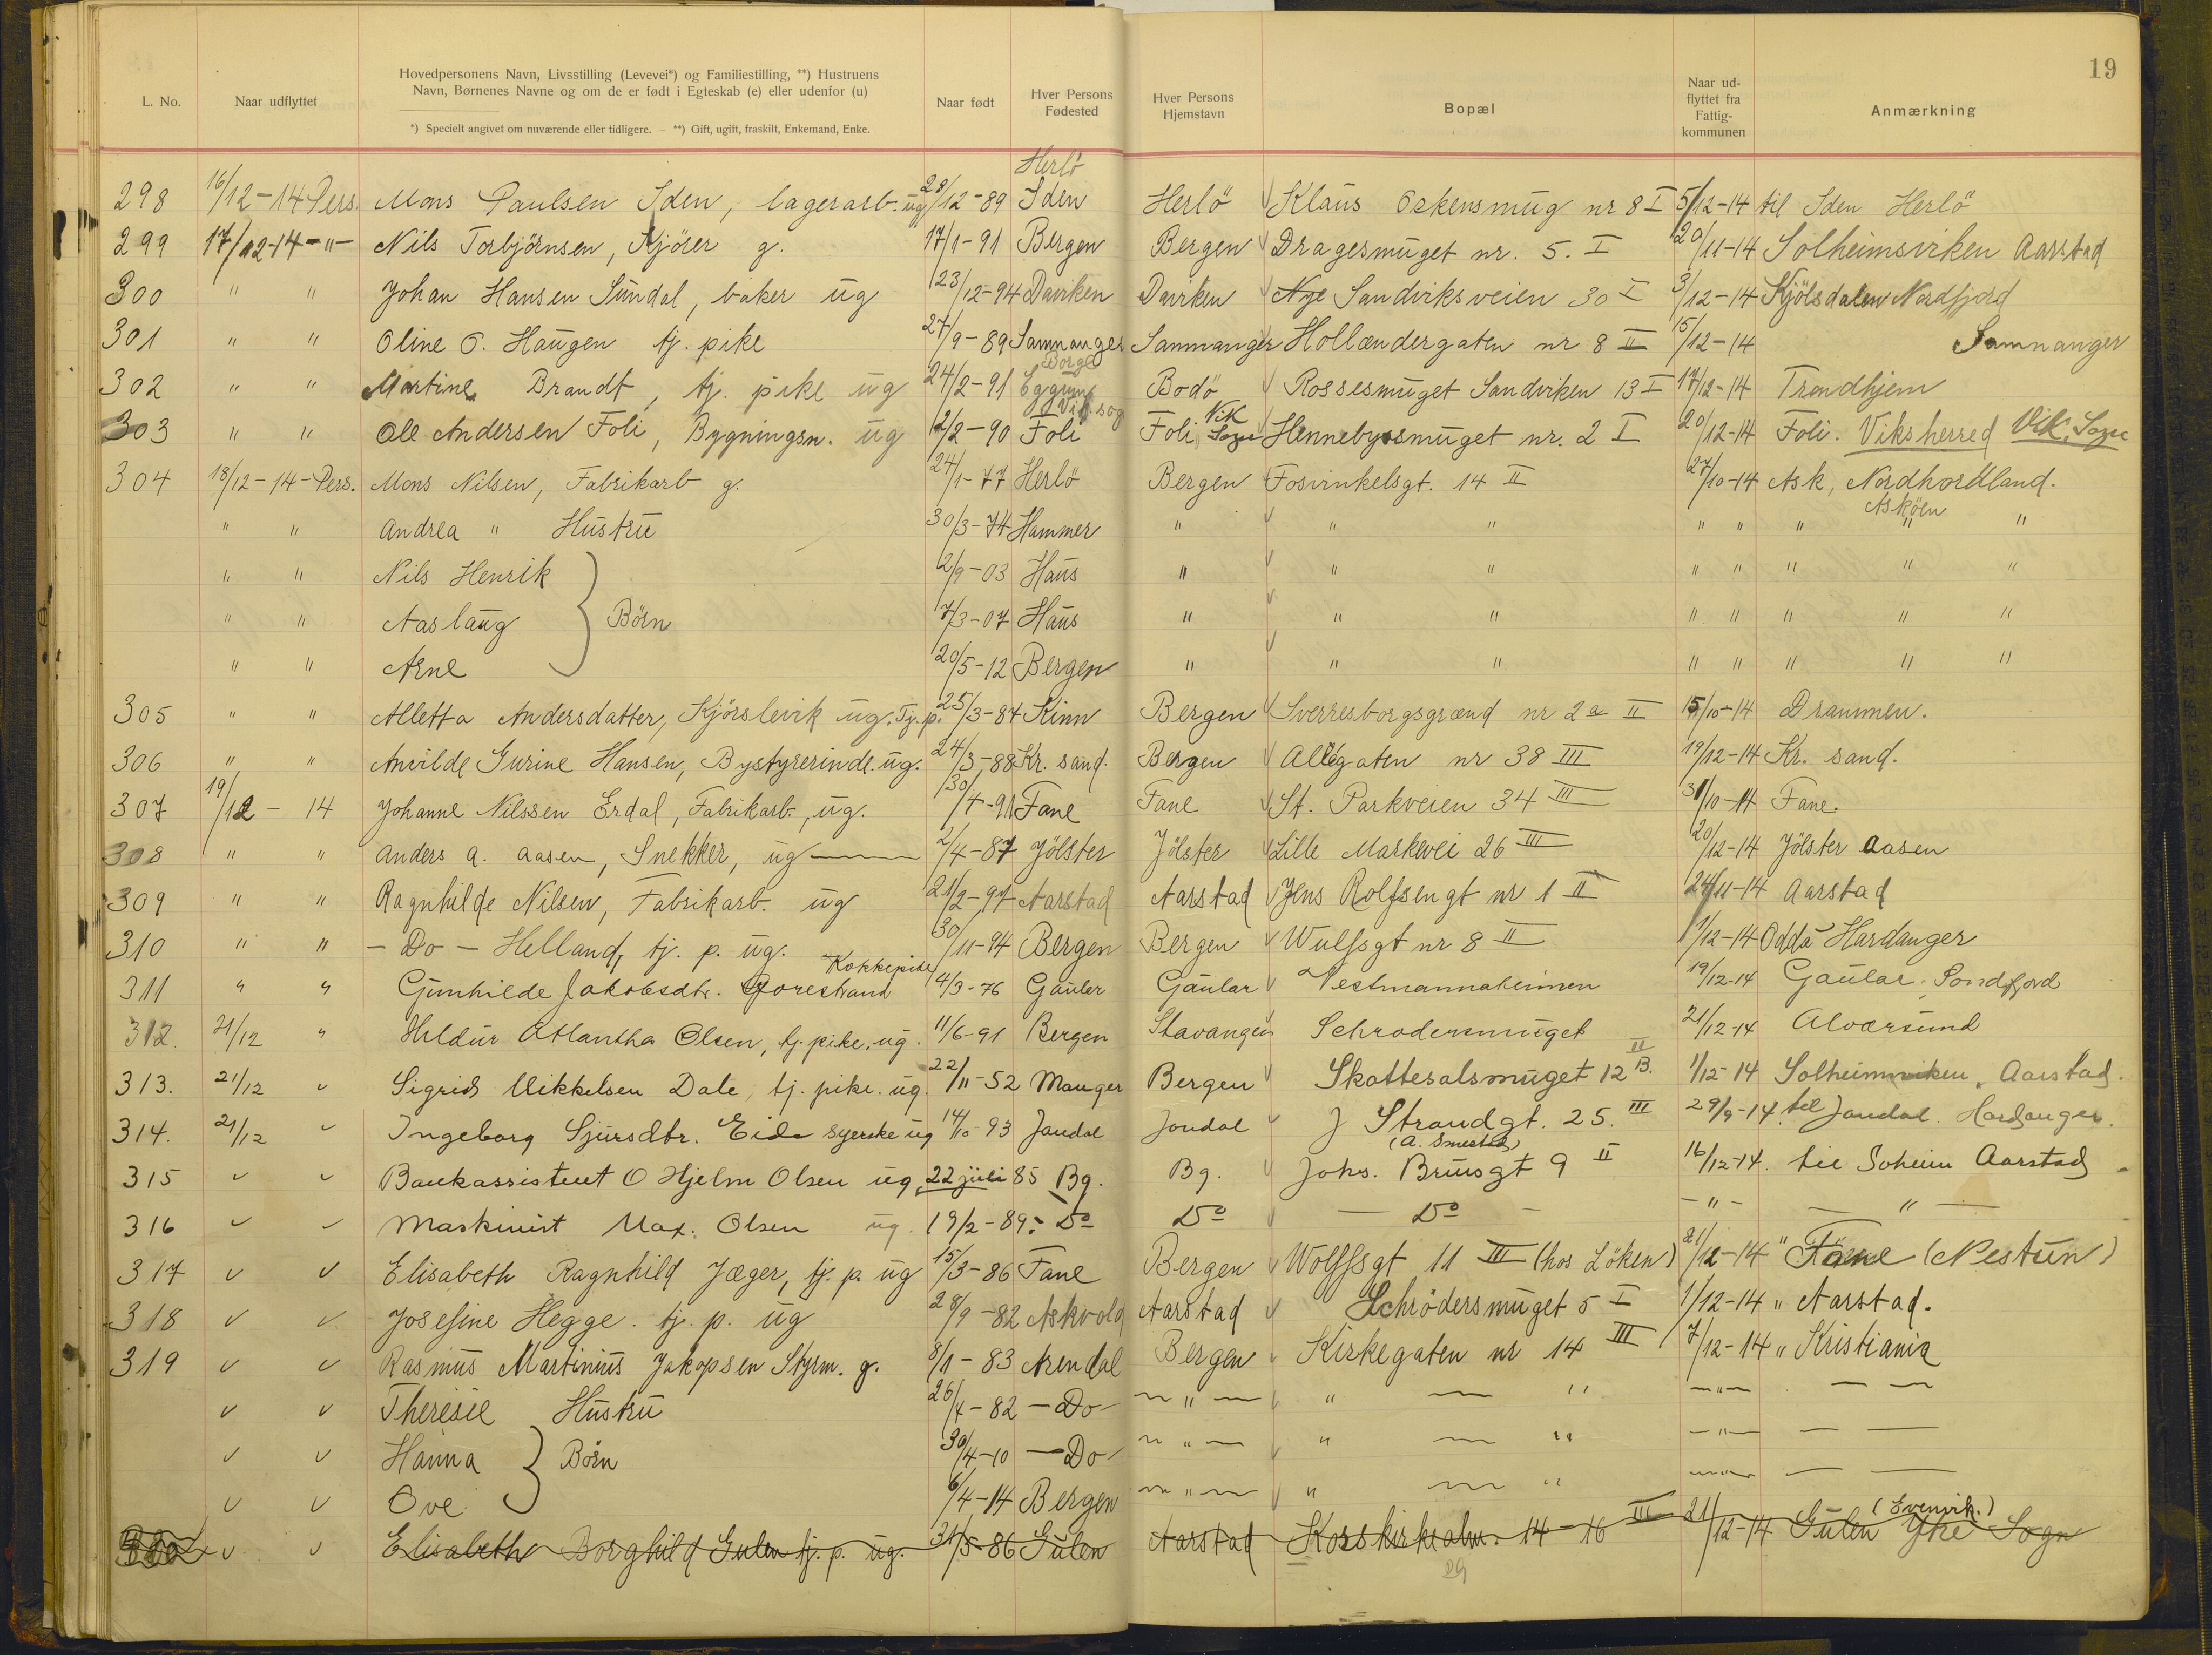 19
L. No.
Naar udflyttet
Hovedpersonens Navn, Livsstilling (Levevei*) og Familiestilling, **) Hustruens
Navn, Børnenes Navne og om de er født i Egteskab (e) eller udenfor (u)
*) Specielt angivet om nuværende eller tidligere. — **) Gift, ugift, fraskilt, Enkemand, Enke.
Naar født
Hver Persons
Fødested
Hver Persons
Hjemstavn
Bopæl
Naar ud-
flyttet fra
Fattig-
kommunen
Anmærkning
Herlö
298 16/12-14 Pers. Mons Paulsen Iden, lagerarb. ug 28/12-89 Iden Herlö Klaus Oskensmug nr 8 I 5/12-14 til Iden Herlö
299 17/12-14 -"- Nils Torbjörnsen, Kjörer g. 17/1-91 Bergen Bergen Dragesmuget nr. 5. I 20/11-14 Solheimsviken Aarstad
300 " " Johan Hansen Sundal, baker ug 23/12-94 Daviken Daviken Nye Sandviksveien 30 I 3/12-14 Kjölsdalen Nordfjord
301 " " Oline O. Haugen tj. pike 27/9-89 Samnanger Samnanger Hollændergaten nr 8 II 15/12-14 Samnanger
Borge
302 " " Martine Brandt, tj. pike ug 24/2-91 Eggum Bodö Rossesmuget Sandviken 13 I 17/12-14 Trondhjem
Vik sog
303 " " Ole Andersen Foli, Bygningsn. ug 12/2-90 Foli Foli, Vik Sogn Hennebysmuget nr. 2 I 20/12-14 Foli. Viksherred Vik, Sogn
304 18/12-14-Pers. Mons Nilsen, Fabrikarb g. 24/1-77 Herlö Bergen Fosvinkelsgt. 14 II 27/10-14 Ask, Nordhordland.
Asköen
" " Andrea " Hustru 30/3-74 Hammer " " " " " " " "
" " Nils Henrik 2/9-03 Haus " " " " " " " "
" " Aaslaug } Börn 7/3-07 Haus " " " " " " " "
" " Arne 20/5-12 Bergen " " " " " " " "
305 " " Alletta Andersdatter, Kjörslevik ug. Tj. p. 25/3-84 Kinn Bergen Sverresborgsgrænd nr 2a II 15/10-14 Drammen.
306 " " Anvilde Gurine Hansen, Bystyrerinde. ug. 24/3-88 Kr. sand. Bergen Allégaten nr 38 III 19/12-14 Kr. sand.
307 19/12 - 14 Johanne Nilssen Erdal, Fabrikarb., ug. 30/4-91 Fane Fane St. Parkveien 34 III 31/10-14 Fane.
308 " " Anders A. Aasen, Snekker, ug 2/4-87 Jölster Jölster Lille Markevei 26 III 20/12-14 Jölster Aasen
309 " " Ragnhilde Nilsen, Fabrikarb. ug 21/2-97 Aarstad Aarstad Jens Rolfsengt nr 1 II 24/11-14 Aarstad
310 " " - Do - Helland, tj. p. ug. 30/11-94 Bergen Bergen Wulfsgt nr 8 II 1/12-14 Odda Hardanger
Kokkepike
311 " " Gunhilde Jakobsdtr. 4/3-76 Gauler Gaular Vestmannaheimen 19/12-14 Gaular. Söndfjord
312. 21/12 " Hildur Atlantha Olsen, tj. pike. ug. 11/6-91 Bergen Stavanger Schrodersmuget 21/12-14 Alværsund
313. 21/12 " Sigrid Mikkelsen Dale, tj. pike. ug. 22/11-52 Manger Bergen Skottesalsmuget 12 B. II 1/12-14 Solheimsviken, Aarstad.
314. 21/12 " Ingeborg Sjursdtr. Eide syerske ug 14/10-93 Jondal Jondal J Strandgt. 25. III 29/9-14. til Jondal. Hardanger.
(A. Smestad)
315 " " Bankassistent O Hjelm Olsen ug, 22 juli 85 Bg. Bg. Johs. Brunsgt 9 II 16/12-14. til Solheim Aarstad
316 " " Maskinist Max. Olsen ug. 19/2-89. Do Do - Do - -"- - " -
317 " " Elisabeth Ragnhild Jæger, tj. p. ug 15/3-86 Fane Bergen Wolffsgt 11 III (hos Löken) 21/12-14 " Fane (Nestun)
318 " " Josefine Hegge. tj. p. ug 28/9-82 Askvold Aarstad Schrödersmuget 5 I 1/12-14 " Aarstad.
319 " " Rasmus Martinius Jakopsen Styrm. g. 8/1-83 Arendal Bergen Kirkegaten nr 14 III 7/12-14 " Kristiania
" " Theresie Hustru 26/4-82 - Do - - " - " - " - " - - -
" " Hanna } Börn 30/4-10 - Do - - " - " - " - " - - -
" " Ove 6/4-14 Bergen - " - " - " - " - - -
(Evenvik.)
320 " " Elisabeth Borghild Gulen tj. p. ug. 31/5-86 Gulen Aarstad Korskirkealm. 14-16 III 21/12-14 Gulen Ytre Sogn
29